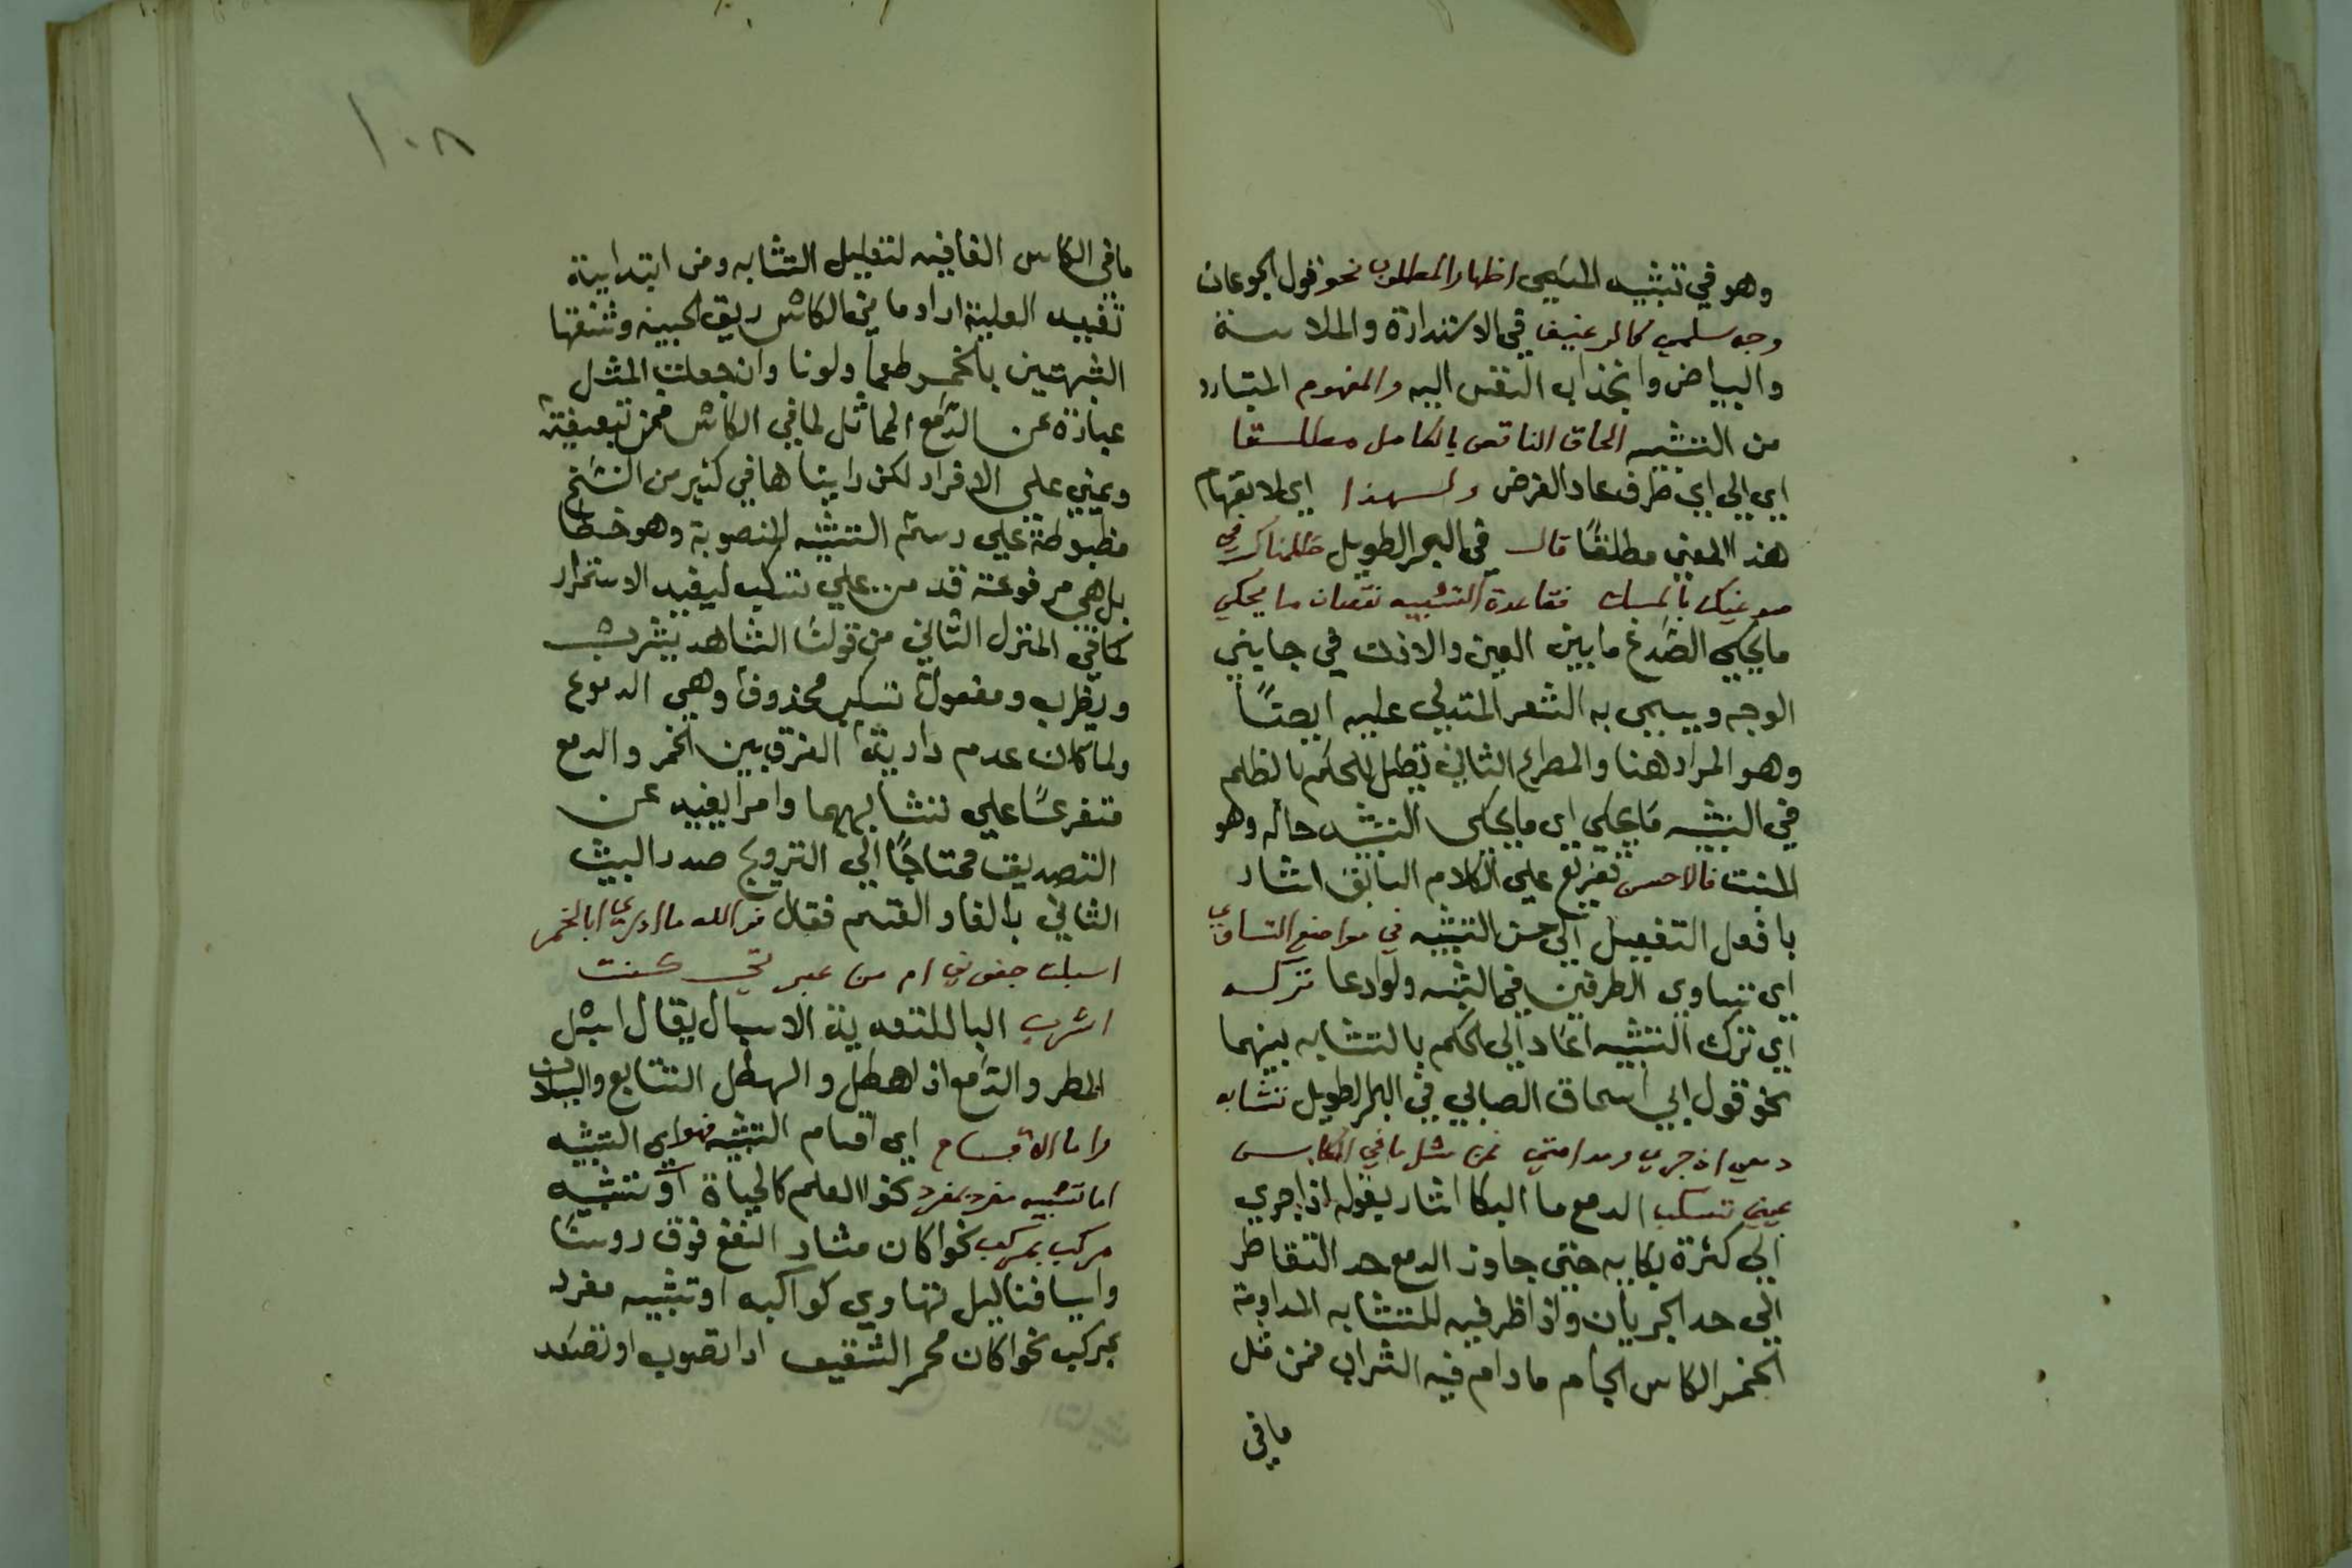 وهو في تشبيه المسمى اظهار المطلوب نحو قول الجوعان
وجه سلمي كالرغيف في الاستدارة والملاسة
والبياض وانجذاب النفس اليه والمفهوم المتبادر
من التشبيه الحاق الناقص بالكامل مطلقا
اي الي اي طرف عاد الغرض ولهذا اي لانفهام
هذا المعني مطلقًا قال في البحر الطويل ظلمناك في
صدغيك بالمسك فقاعدة التشبيه نقصان ما يحكي
ما يحكي الصدغ ما بين العين والاذن في جانبي
الوجه ويسمى به الشعر المتدلي عليه ايضًا
وهو المراد هنا والمصراع الثاني تعليل للحكم بالظلم
في التشبيه ما يحكي اي ما يحكي التشبيه حاله وهو
المشبه فالاحسن تفريع علي الكلام السابق اشار
بافعل التفضيل الي حسن التشبيه في مواضع التساوي
اي تساوي الطرفين في الشبه ولو ادعا تركه
اي ترك التشبيه اعتمادا الي الحكم بالتشابه بينهما
نحو قول ابي اسحاق الصابي في البحر الطويل تشابه
دمعي اذ جري ومدامتي فمن مثل ما في الكاس
عيني تسكب الدمع ما البكا اشار بقوله اذا جري
الي كثرة بكايه حتي جاوز الدمع حد التقاطر
الي حد الجريان واذا ظرفيه للتشابه المدامة
الخمر الكاس الجام مادام فيه الشراب فمن مثل
ما في
١٠٨
ما في الكاس الفافيه لتعليل التشابه ومن ابتدايية
تفيد العلية اراد ما في الكاس ريق الحبيبه وشفتها
الشبهتين بالخمر طعما ولونا وان جعلت المثل
عبارة عن الدمع المماثل لما في الكاس فمن تبعيضية
وعيني علي الافراد لكن رايناها في كثير من النسخ
مضبوطة علي رسم التثنيه المنصوبة وهو خطا
بل هي مرفوعة قدمت علي تسكب ليفيد الاستمرار
كما في المنزل الثاني من قولنا الشاهد يشرب
ويطرب ومفعول تسكب محذوف وهي الدموع
ولما كان عدم دراية الفرق بين الخمر والدمع
متفرعًا علي تشابههما وامرا بعيد عن
التصديق محتاجًا الي الترويج صدر البيت
الثاني بالفا والقسم فقال فوالله ما ادري ابالخمر
اسبلت جفوني ام من عبرتي كنت
اشرب البا للتعدية الاسبال يقال اسبل
المطر والدمع اذا هطل والهطل التتابع والسيلان
واما الاقسام اي اقسام التشبيه فهو اي التشبيه
اما تشبيه مفرد بمفرد نحو العلم كالحياة او تشبيه
مركب بمركب نحو كان مثار النقع فوق روسنا
واسيافنا ليل تهاوي كواكبه او تشبيه مفرد
بمركب نحو كان محمر الشقيق اذا تصوب او تصعد